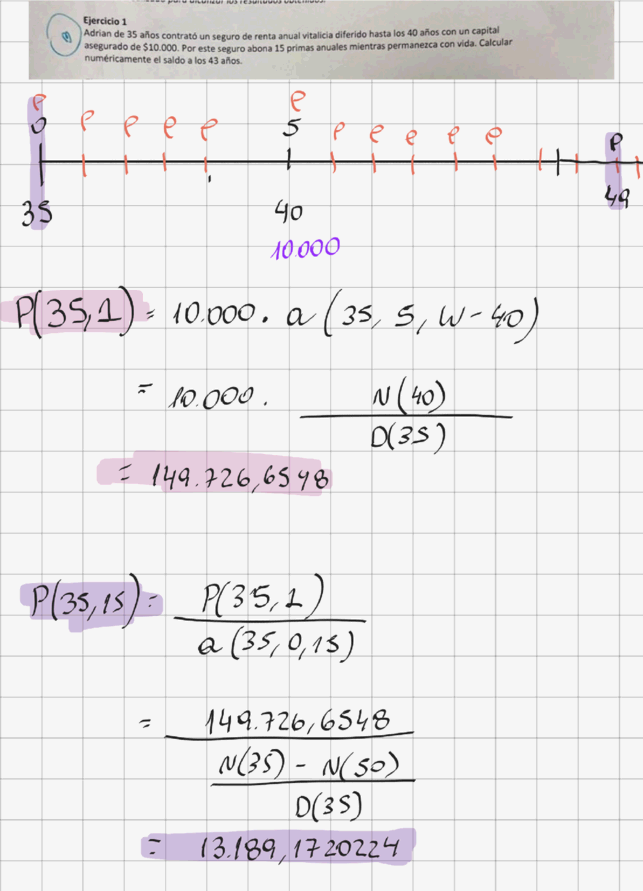 Ejercicio 1
Adrian de 35 años contrató un seguro de renta anual vitalicia diferido hasta los 40 años con un capital
asegurado de $10.000. Por este seguro abona 15 primas anuales mientras permanezca con vida. Calcular
numéricamente el saldo a los 43 años.
P P P P P P P P P P P P
0 5
35 40 49
10.000
P(35,1) = 10.000. a (35, 5, W-40)
= 10.000. N(40)
D(35)
= 149.726,6548
P(35,15) = P(35,1)
a(35,0,15)
= 149.726,6548
N(35) - N(50)
D(35)
= 13.189,1720224